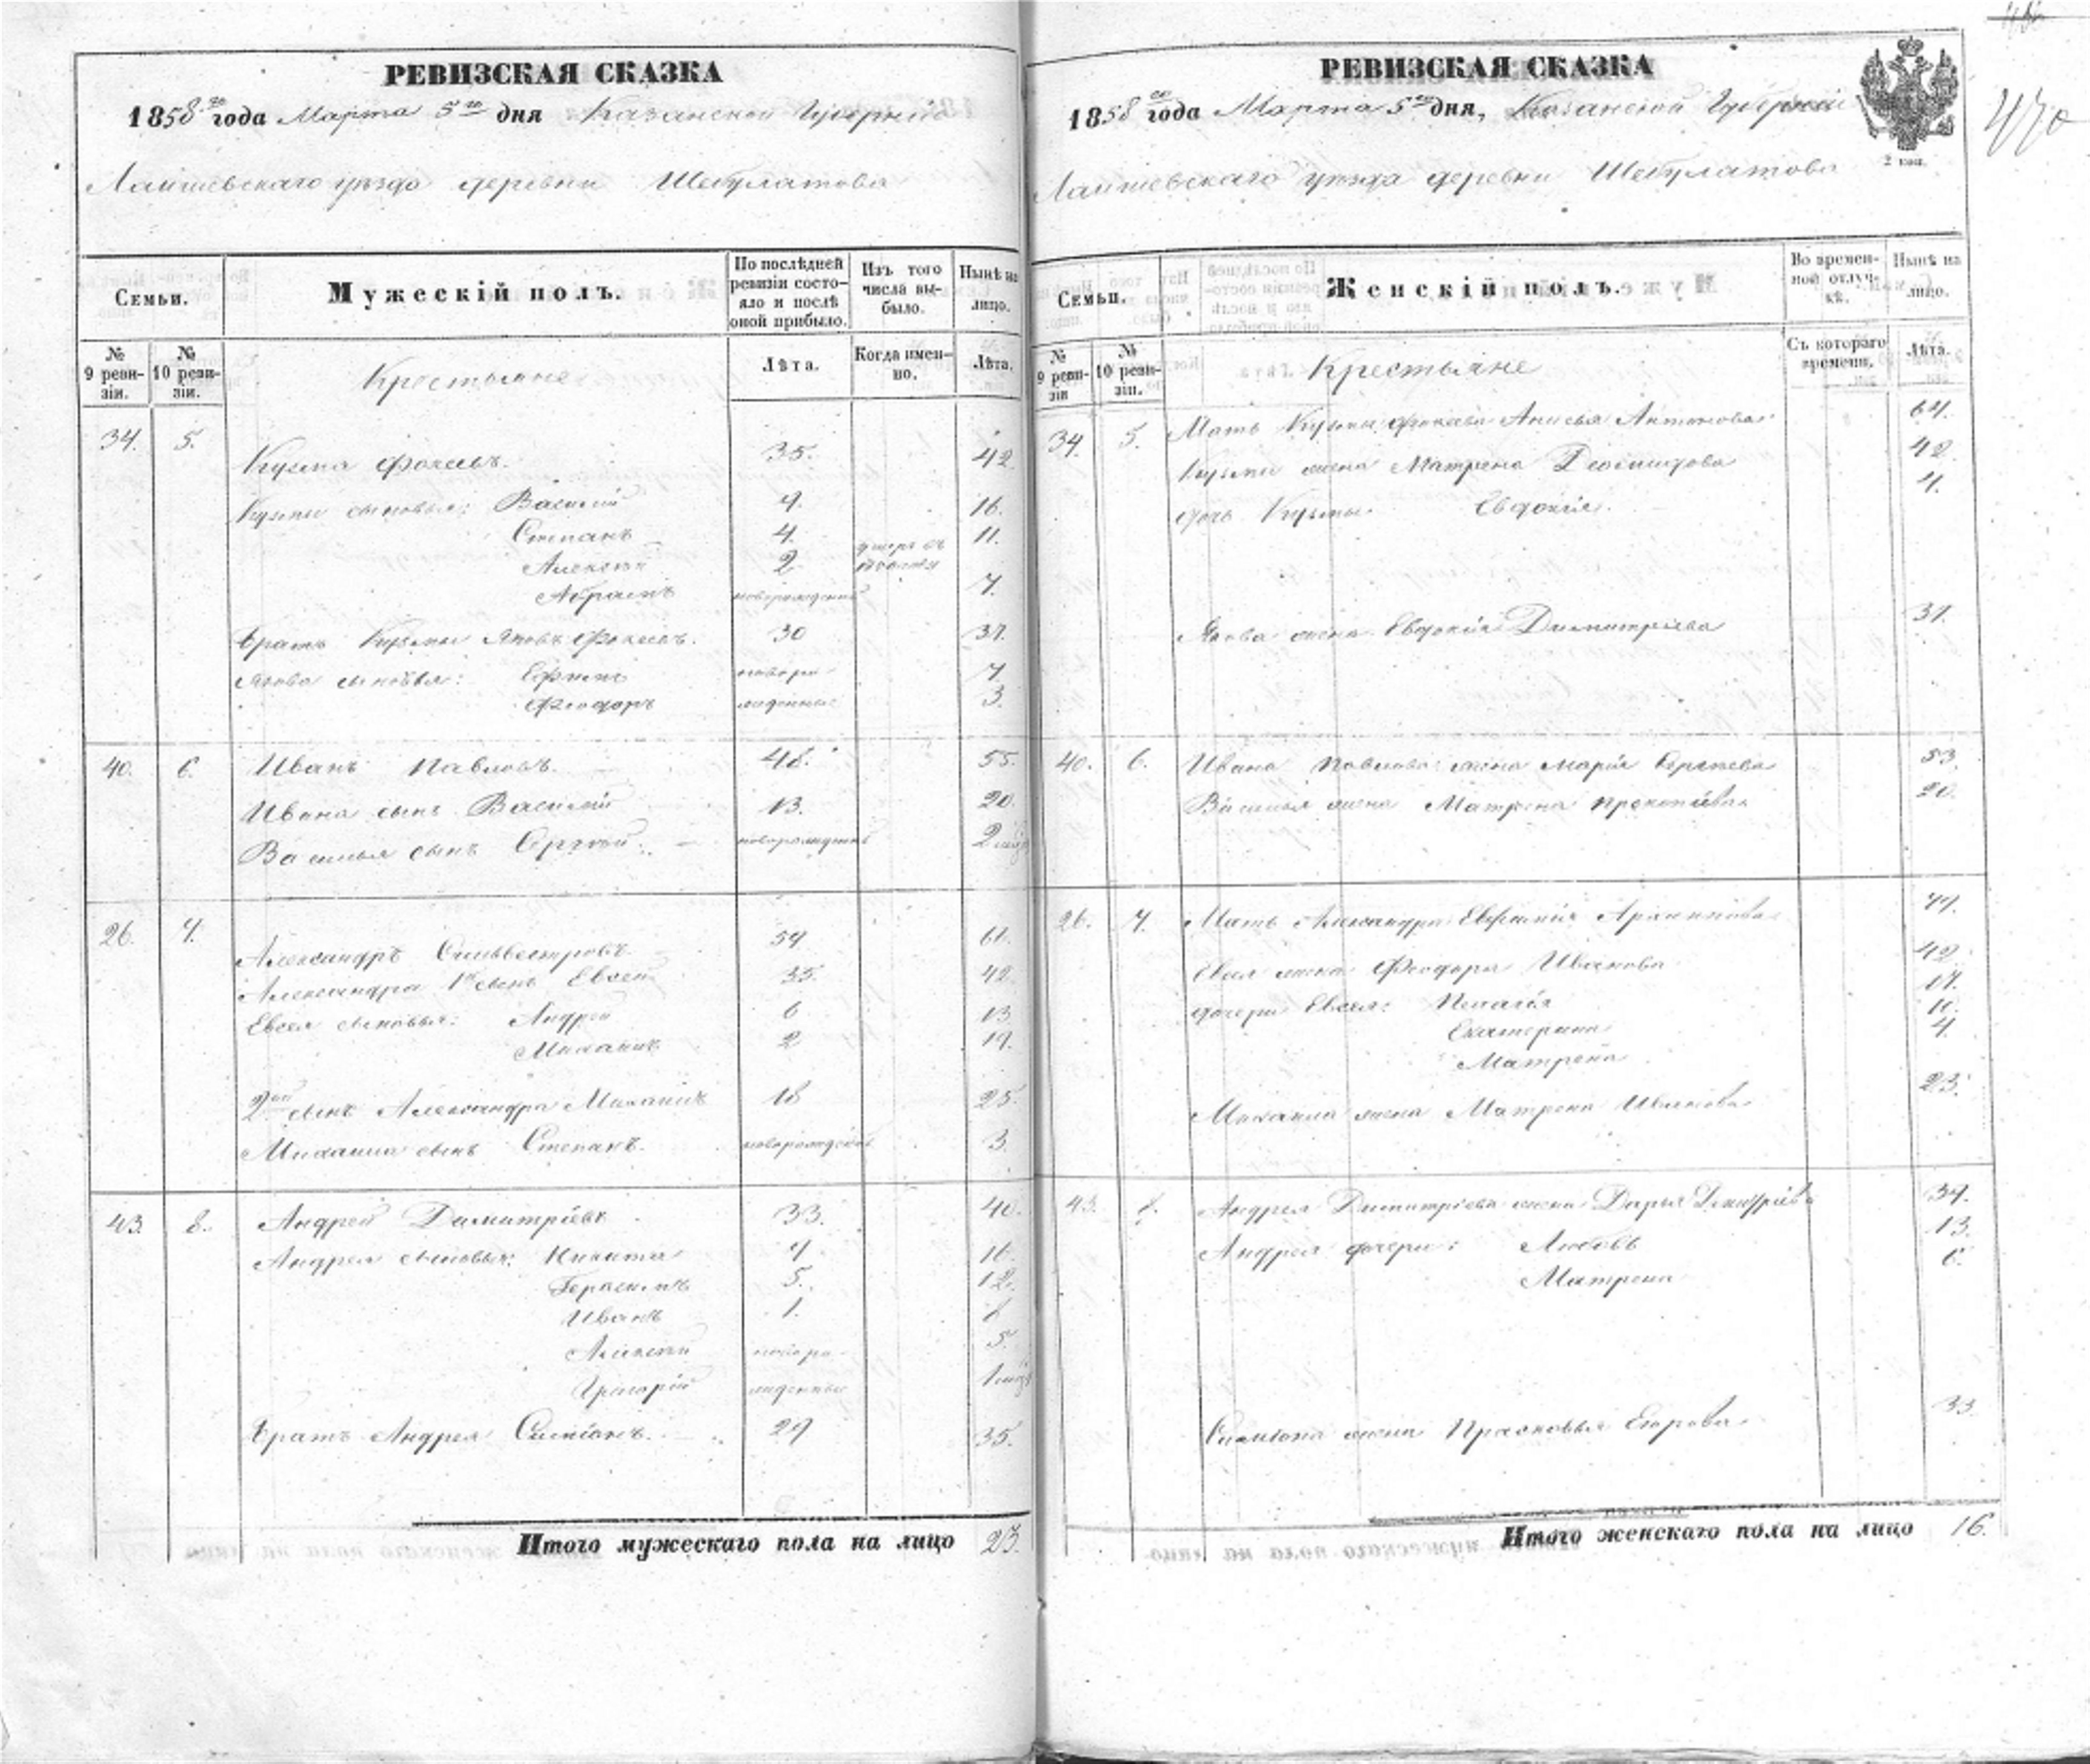 РЕВИЗСКАЯ СКАЗКА
1858 го года Марта 5 го дня Казанской Губернии
Лаишевскаго уезда деревни Шебулатова
Семьи.
Мужескій полъ.
По послѣдней ревизіи состояло и послѣ оной прибыло.
Изъ того числа выбыло.
Нынѣ на лицо.
№ 9 ревизіи.
№ 10 ревизіи.
Крестьяне
Лѣта.
Когда именно.
Лѣта.
34. 5. Кузма Фокеевъ. 35. 42.
Кузмы сыновья: Василий 9. 16.
Степанъ 4. 11.
Алексей 2 умеръ въ
Абрамъ новорожденный 7.
братъ Кузмы Яковъ Фокеевъ. 30 37.
Якова сыновья: Ефимъ новоро- 7
Феодоръ жденные 3.
40. 6. Иванъ Павловъ. 48. 55.
Ивана сынъ Василий 13. 20.
Василья сынъ Сергей. новорожденъ 2
26. 7. Александръ Сильвестровъ 54 61.
Александра 1й сынъ Евсей 35. 42.
Евсея сыновья: Андрей 6 13
Михаилъ 2 19.
2ой сынъ Александра Михаилъ 18 25.
Михаила сынъ Степанъ. новорожденный 3.
43. 8. Андрей Димитріевъ 33. 40.
Андрея сыновья: Никита 9. 16.
Герасимъ 5. 12.
Иванъ 1. 8
Алексей новоро- 5.
Григорій жденные 1
братъ Андрея Симіонъ. 29 35.
Итого мужескаго пола на лицо 23.
470
РЕВИЗСКАЯ СКАЗКА
1858 го года Марта 5 го дня, Казанской Губерніи
2 коп.
Лаишевскаго уезда деревни Шебулатова
Семьи.
Женскій полъ.
Во временной отлучкѣ.
Нынѣ на лицо.
№ 9 ревизіи
№ 10 ревизіи.
Крестьяне
Съ котораго времени.
Лѣта.
34. 5. Мать Кузмы Фокеева Анисья Антонова 64.
Кузмы жена Матрена 42.
дочь Кузмы Евдокія. 4.
Якова жена Евдокія Димитріева 31.
40. 6. Ивана Павлова жена Марія Сергеева 53.
Василья жена Матрена Прокопіева 20.
26. 7. Мать Александра Евфимія Архипова 77.
Евсея жена Феодора Иванова 42.
дочери Евсея: Пелагія 17.
Екатерина 11.
Матрена 4
Михаила жена Матрена Иванова 23.
43. 8. Андрея Димитріева жена Дарья 39.
Андрея дочери: Любовь 13.
Матрена 6.
Симіона жена Прасковья Егорова 33
Итого женскаго пола на лицо 16.